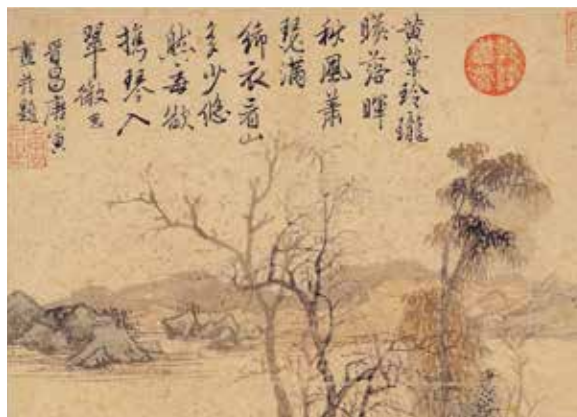 黄葉玲瓏
暎落暉
秋風蕭
瑟滿
絺衣看山
多少悠
然每欲
携琴入
翠微
晉昌唐寅
畫并題